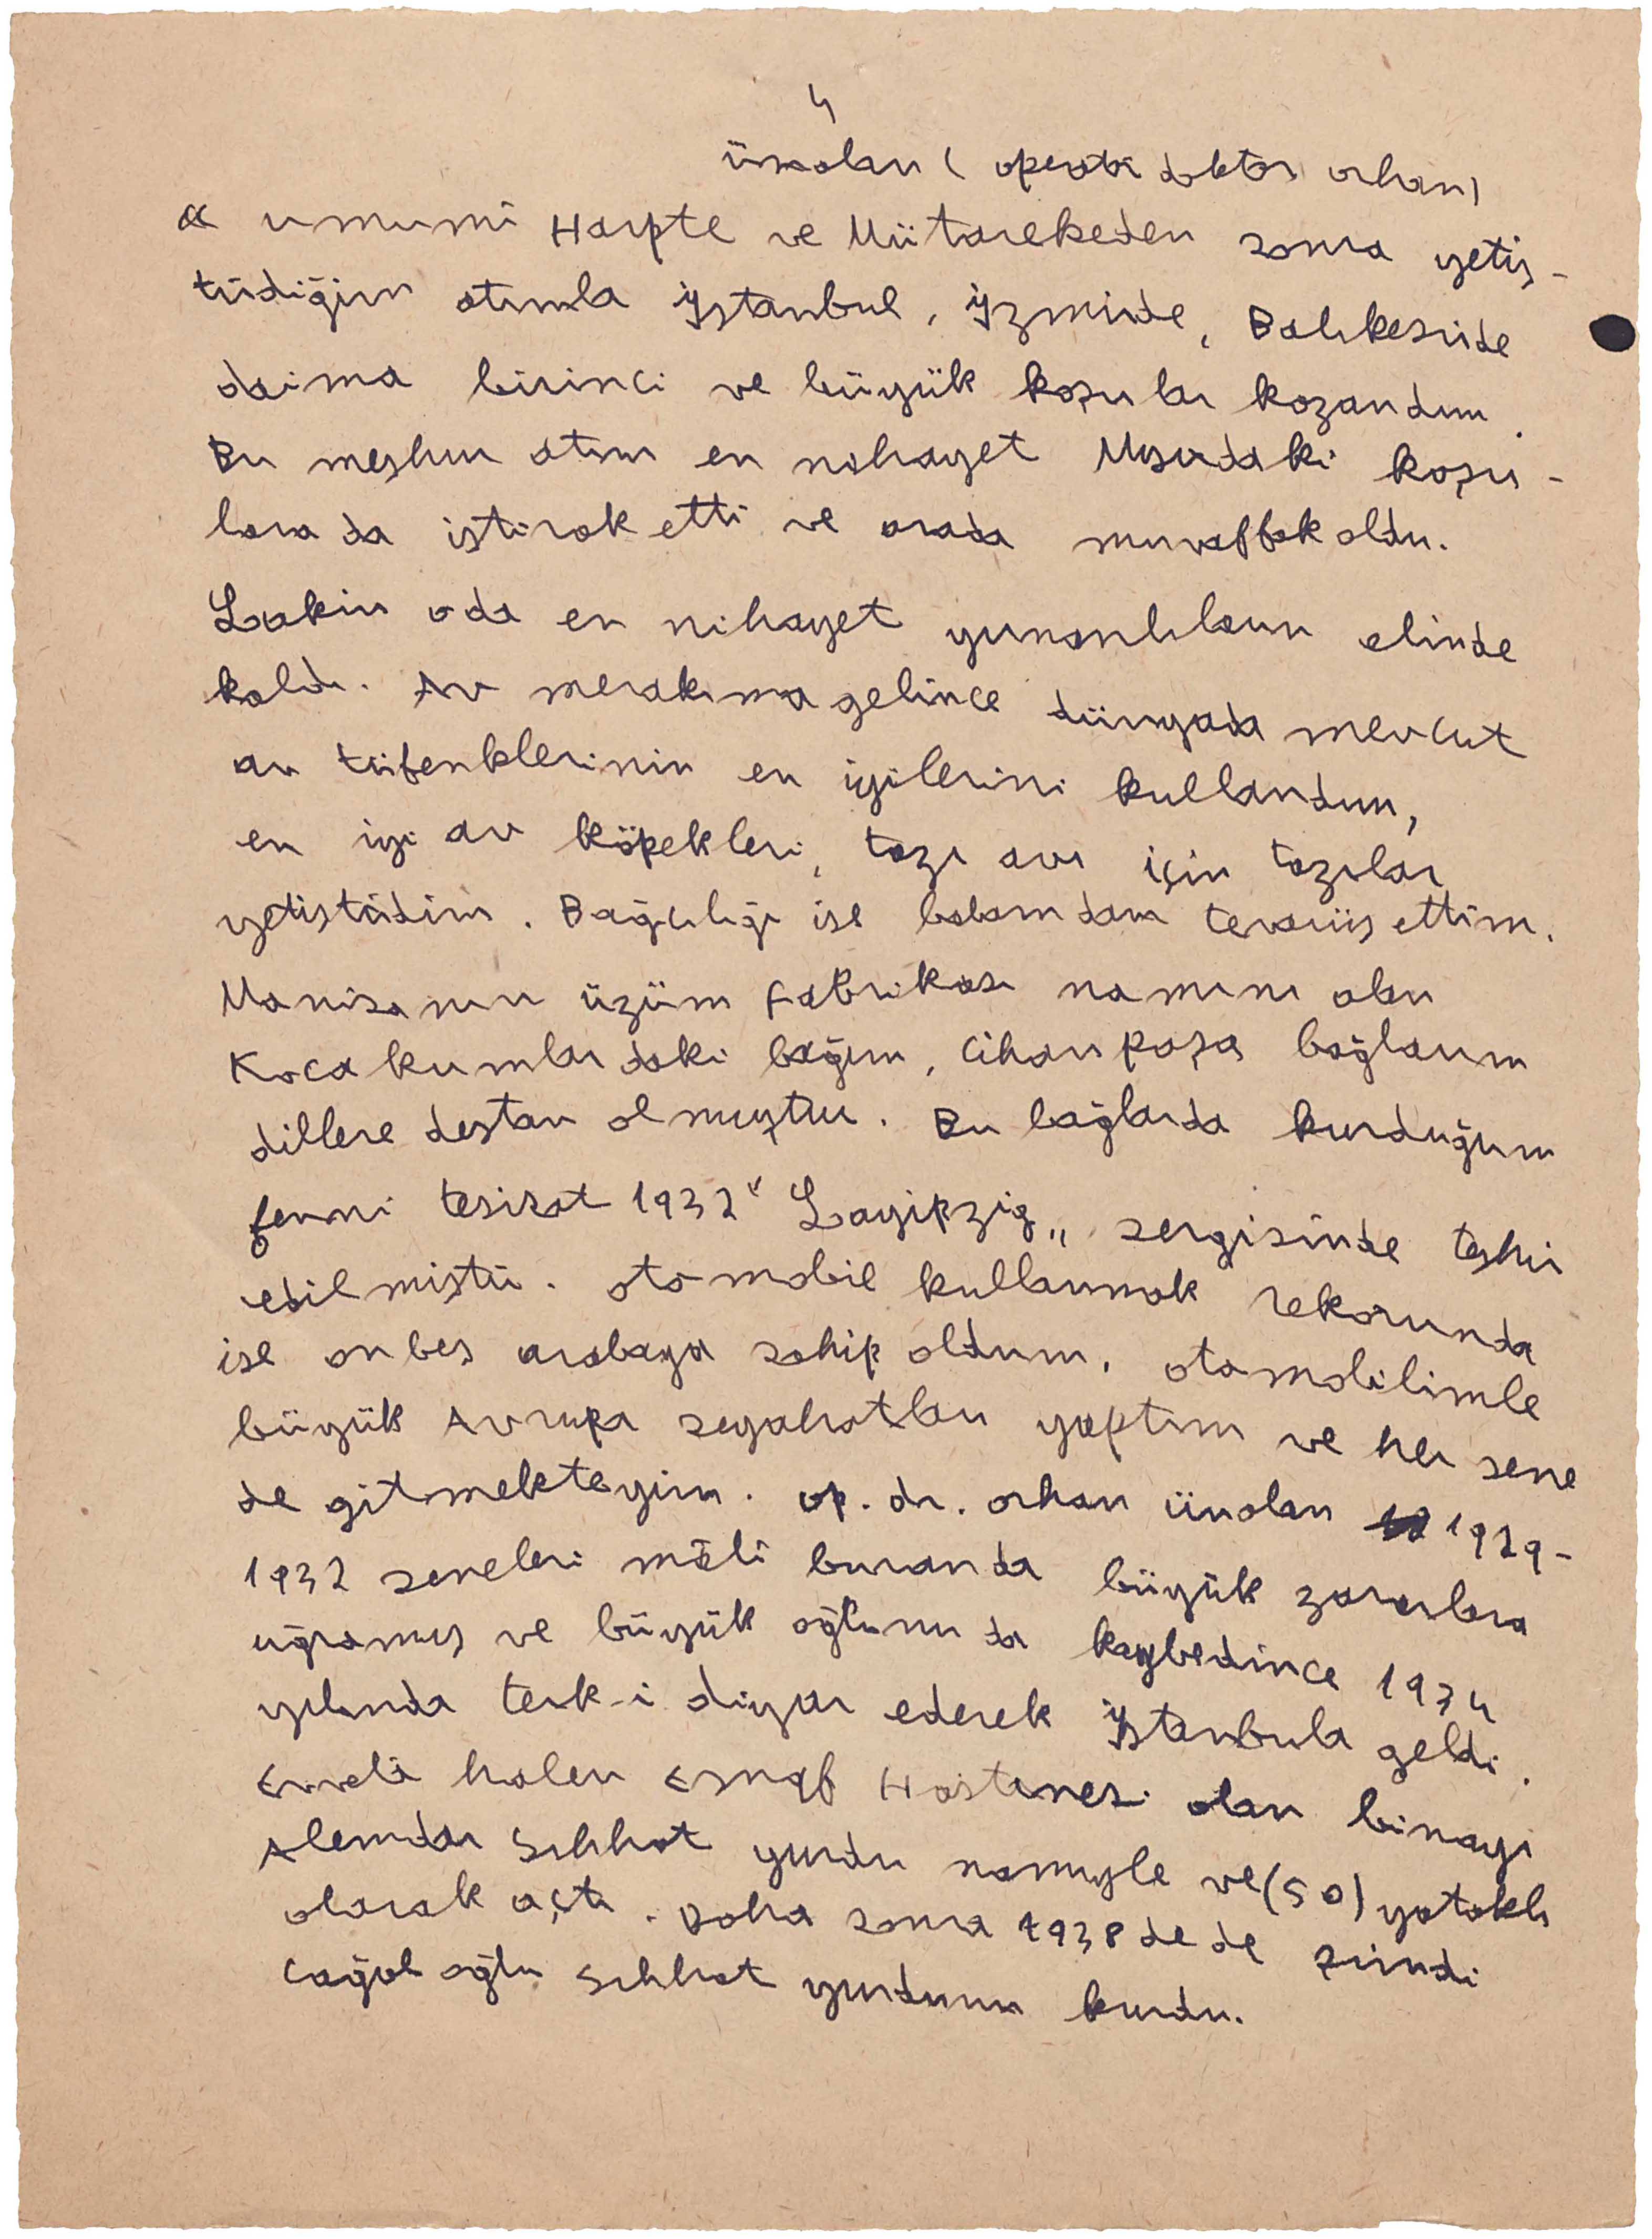 4
ünolan ( operatör doktor orhan)
" umumi Harpte ve Mütarekeden sonra yetiş-
tirdiğim atımla İstanbul, İzmirde, Balıkesirde
daima birinci ve büyük koşular kazandım.
Bu meşhur atım en nihayet Mısırdaki koşu-
larada iştirak etti ve orada muvaffak oldu.
Lakin oda en nihayet yunanlıların elinde
kaldı. Av merakıma gelince dünyada mevcut
av tüfenklerinin en iyilerini kullandım,
en iyi av köpekleri, tazı avı için tazılar
yetiştirdim. Bağcılığı ise babamdan tevarüs ettim.
Manisanın üzüm fabrikası namını alan
Kocakumlardaki bağım, Cihanpaşa bağlarım
dillere destan olmuştur. Bu bağlarda kurduğum
fenni tesisat 1932 "Layipzig" sergisinde teşhir
edilmiştir. otomobil kullanmak rekorunda
ise onbeş arabaya sahip oldum, otomobilimle
büyük Avrupa seyahatları yaptım ve her sene
de gitmekteyim. op. dr. orhan ünolan 1929-
1932 seneleri mâli buranda büyük zararlara
uğramış ve büyük oğlunu da kaybedince 1934
yılında terk-i diyar ederek İstanbula geldi.
Evvelâ halen Esnaf Hastanesi olan binayi
Alemdar Sıhhat yurdu namıyle ve (50) yataklı
olarak açtı. Daha sonra 1938 de de şimdi
Cağaloğlu Sıhhat yurdunu kurdu.